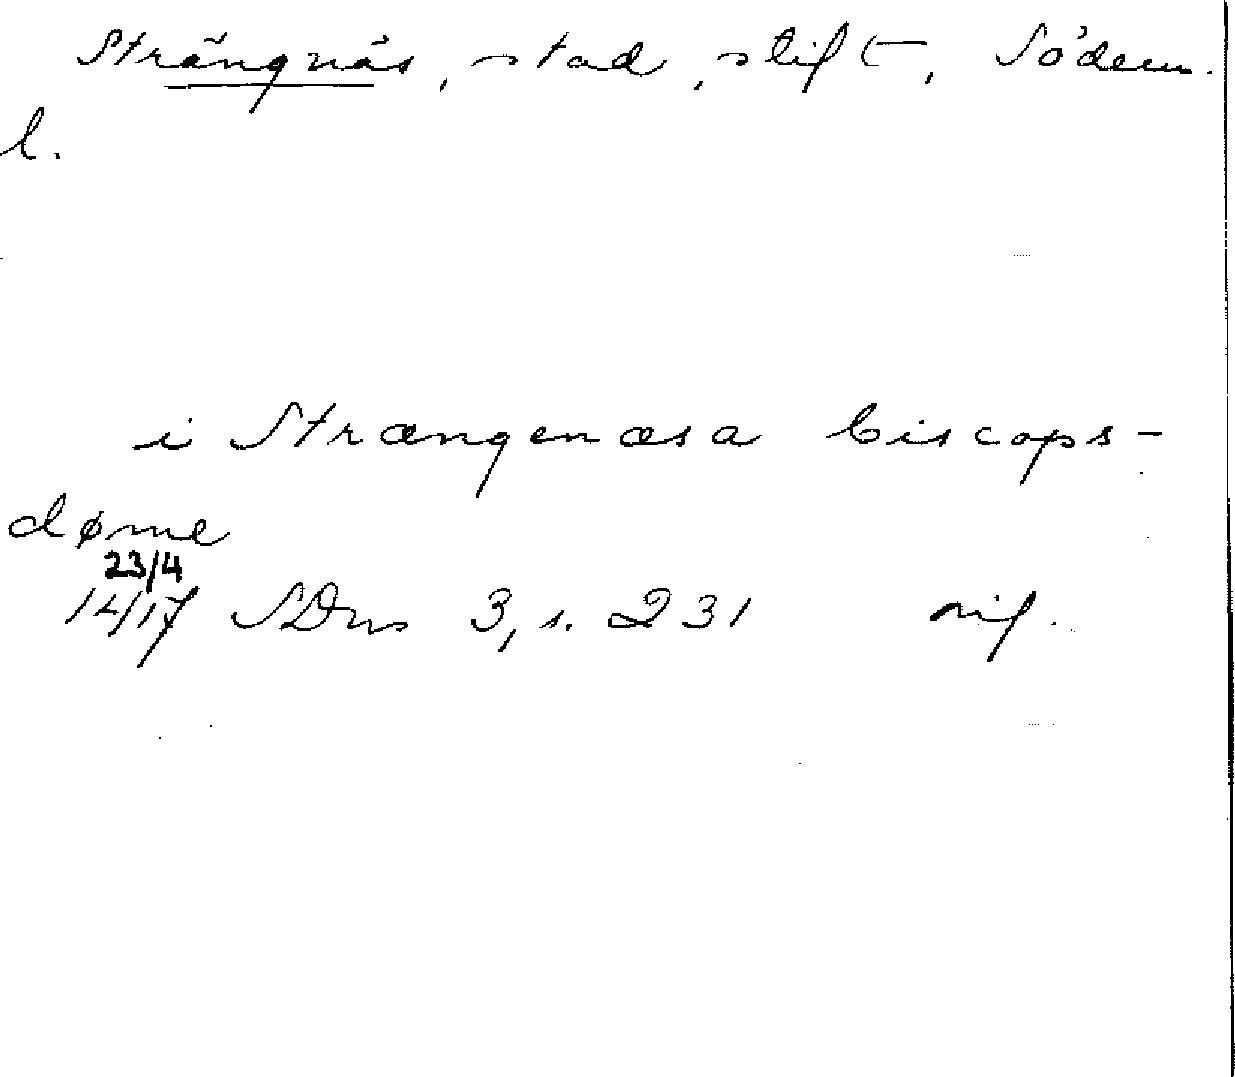 Strängnäs, stad, stift, Söderm.
l.
i Strængenæsa biscops-
døme
23/4
1417 SDns 3, s. 231